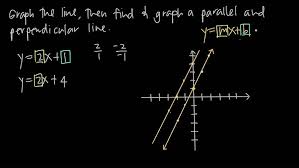 Graph the line, then find & graph a parallel and
perpendicular line.
y=2x+1 2/1 -2/-1 y=mx+b
y=2x+4